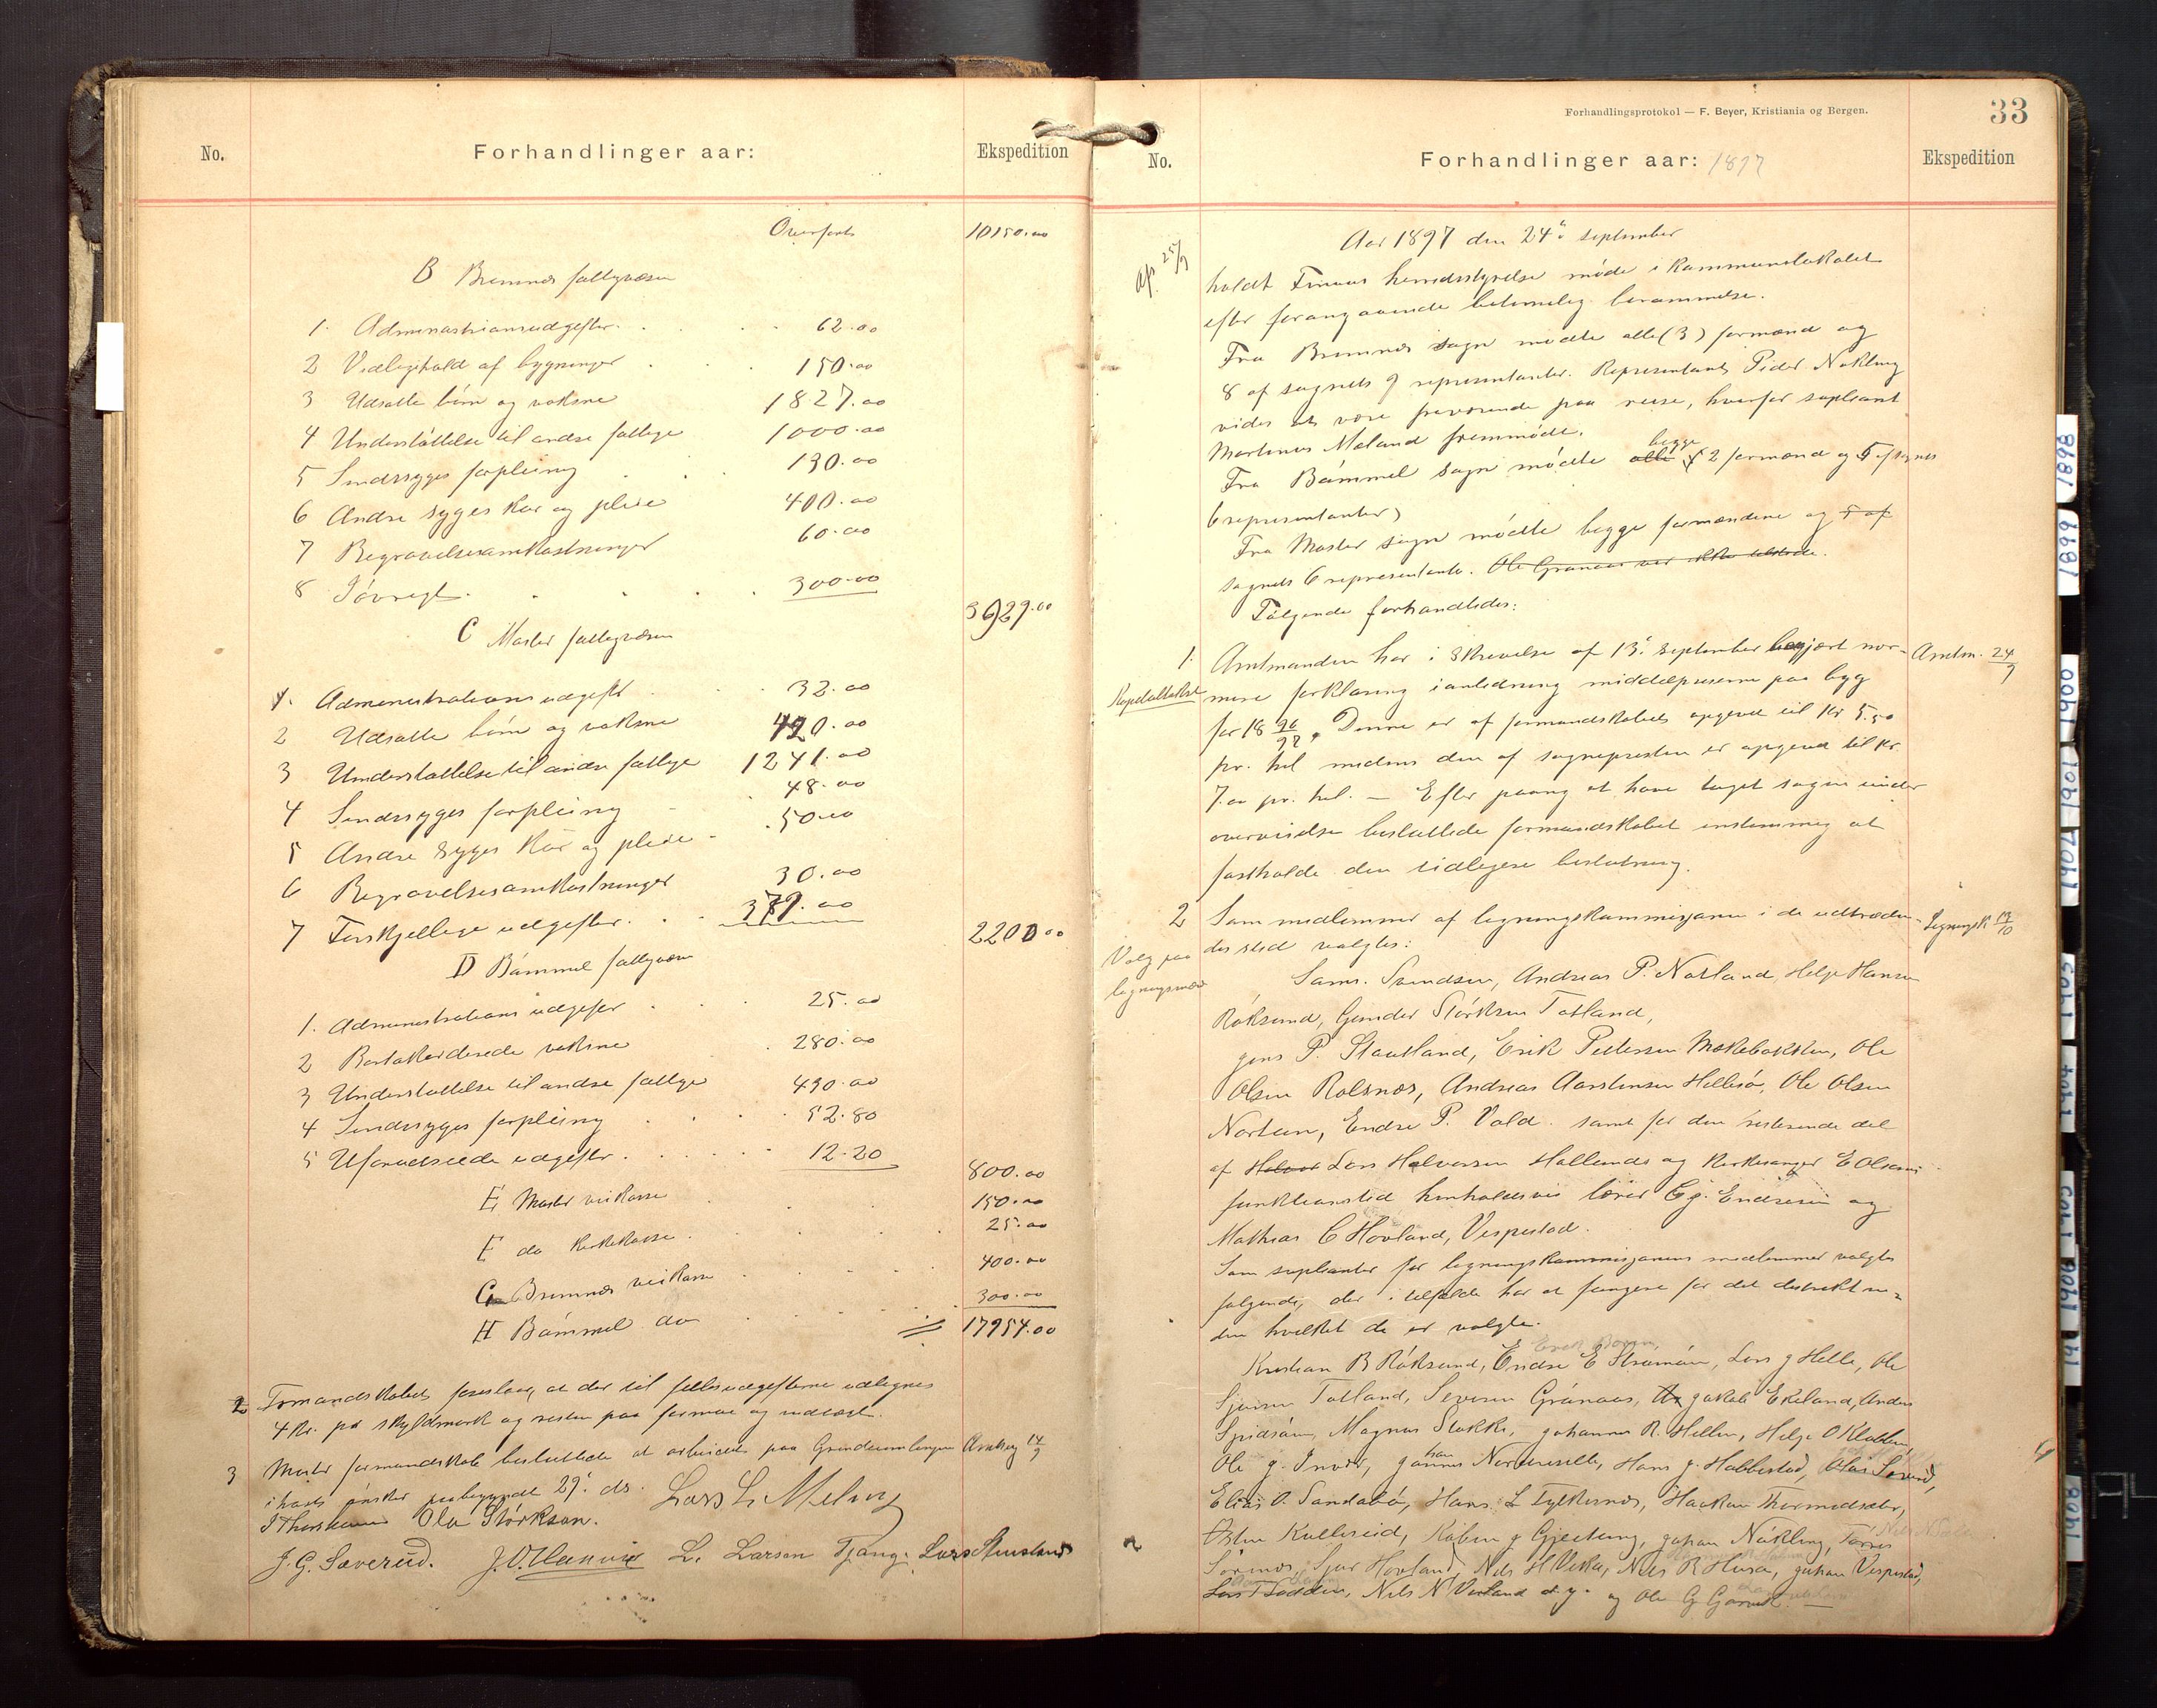 No. Forhandlinger aar: Ekspedition
Overført 10150.00
B Bremnes fattigvæsen
1. Administrationsudgifter. 62.00
2 Vedligehold af bygninger 150.00
3 Udsatte børn og voksne 1827.00
4 Understøttelse til andre fattige 1000.00
5 Sindssyges forpleining 130.00
6 Andre syges kur og pleie 400.00
7 Begravelsesomkostninger 60.00
8 Iøvrigt. 300.00
3929.00
C Moster fattigvæsen
1. Administrations udgifter 32.00
2 Udsatte børn og voksne 420.00
3 Understøttelse til andre fattige 1241.00
4 Sindssyges forpleining 48.00
5 Andre syges kur og pleie 50.00
6 Begravelsesomkostninger 30.00
7 Forskjellige udgifter. 379.00
2200.00
D Bømmel fattigvæsen
1. Administrations udgifter 25.00
2 Bortakorderede voksne 280.00
3 Understøttelse til andre fattige 430.00
4 Sindssyges forpleining 52.80
5 Uforudseede udgifter. 12.20
800.00
E Moster veikasse 150.00
F do kirkekasse. 25.00
G Bremnes veikasse 400.00
H Bømmel do 300.00
17954.00
2 Formandskabet foreslaar, at der til fællesudgifterne udlignes
4 kr. pr skyldmark og resten paa formue og indtægt.
3 Moster formandskab besluttede at arbeidet paa
i høst ønskes paabegyndt 29. ds. Lars L. Meling
Ola Størkson.
J. G. Sæverud. L. Larsen Tjong. Lars
Forhandlingsprotokol — F. Beyer, Kristiania og Bergen.
33
No. Forhandlinger aar: 1897 Ekspedition
Aar 1897 den 24de september
Af. 25/9
holdt Finnaas herredsstyrelse møde i kommunelokalet
efter forangaaende betimelig berammelse.
Fra Bremnes sogn mødte alle (3) formænd og
8 af sognets 9 repræsentanter. Repræsentant Peder Nøkling
vides at være fraværende paa reise, hvorfor supleant
Martinus Meland fremmødte.
Fra Bømmel sogn mødte alle begge 2 formænd og 5 af sognets
6 repræsentanter,
Fra Moster sogn mødte begge formændene og 5 af
sognets 6 repræsentanter. Ole Grønaas var ikke tilstede.
Følgende forhandledes:
1. Amtmanden har i skrivelse af 13. september begjært nær- Amtm. 24/9
Kapitelstakst mere forklaring i anledning middelpriserne paa byg
for 18 96/97. Denne er af formandskabet opgivet til kr 5.50
pr. hel. medens den af sognepresten er opgivet til kr.
7.00 pr. hel. — Efter paany at have taget sagen under
overveielse besluttede formandskabet enstemmig at
fastholde den tidligere beslutning.
2 Som medlemmer af ligningskommisjonen i de udtræden-
Valg paa des sted valgtes:
Sams. Svendsen, Andreas P. Notland, Helge Hansen
Røksund, Gunder Størksen Totland,
Jens P. Stautland, Erik Pettersen Mækebakken, Ole
Olsen Rolsnæs, Andreas Aarstensen Hellesø, Ole Olsen
Nortun, Endre P. Vold. samt for den resterende del
af Lars Halvorsen Hallemds og kirkesanger E Olsens
funktionstid henholdsvis lærer G. J. Endresen og
Mathias C Hovland, Vespestad.
Som suplianter for ligningskommisjonens medlemmer valgtes
følgende, der i tilfælde har at fungere for det distrikt in-
den hvilket de er valgte.
Kristian B Røksund, Endre E Strømøen, Lars J Helle, Ole
Totland, Severin Grønaas, Jakob Ekeland, Anders
Spidsøen, Magnus Stokke, Johannes R. Hellen, Helge O Klubben,
Ole J. Johannes Hans J. Habbestad,
Elias O. Sandabø, Hans L Fylkesnes, Haakon
Østen Kalleveid, Kolbein J Gjeitung, Johan Nøkling,
Sørnes, Sjur Hovland, Nils H Vika, Nils R Husa, Johan Vespestad,
Nils N Vorland d.y. og Ole G